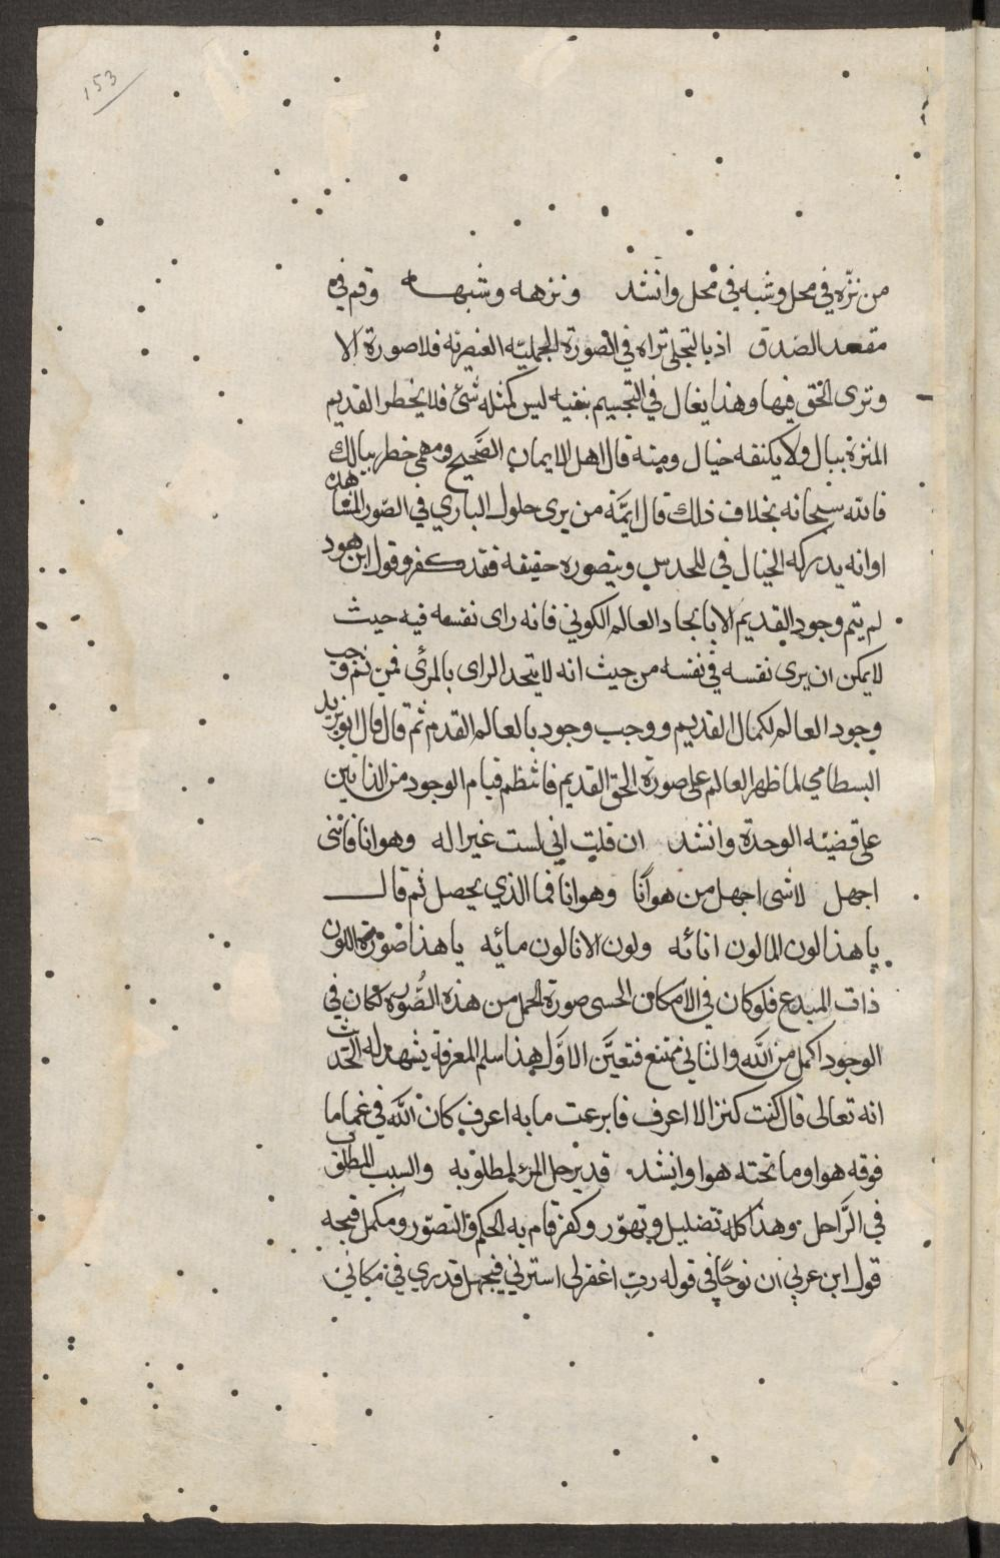 153
من نزّه في محل وشبه في محل وانشد ونزهه وشبهه وقم في
مقعد الصدق اذ بالتجلي تراه في الصورة الجمليّه العنصريّه فلا صورة الا
وترى الحق فيها وهذا يغال في التجسيم بنفيه ليس كمثله شئ فلا يخطر القديم
المنزه ببال ولا يكنفه خيال ومنه قال اهل الايمان الصّحيح ومهمى خطر ببالك
فالله سبحانه بخلاف ذلك قال ايمّة من يرى حلول الباري في الصّور المشاهدة
او انه يدركه الخيال في للحدس ويتصوره حقيقة فقد كفر وقول ابن هود
لم يتم وجود القديم الا بايجاد العالم الكوني فانه راى نفسه فيه حيث
لا يمكن ان يرى نفسه في نفسه من حيث انه لا يتحد الراى بالمرئ فمن ثم وجب
وجود العالم لكمال القديم ووجب وجود بالعالم القدم ثم قال قال ابو يزيد
البسطامي لما ظهر العالم على صورة الحق القديم فانتظم قيام الوجود من الذاتين
على قضيّه الوحدة وانشد ان قلت اني لست غير اله وهو انا فانني
اجهل لا شى اجهل من هو انا وهو انا فما الذي يحصل ثم قال
يا هذا لون الما لون انائه ولون الانا لون مائه يا هذا صورة اللون
ذات المبدع فلو كان في الامكان الحسى صورة اكمل من هذه الصّوره لكان في
الوجود اكمل من الله والثاني ممتنع فتعيّن الاوّل هذا سلم المعرفة يشهد له الحديث
انه تعالى قال كنت كنزا لا اعرف فابرعت ما به اعرف كان الله في غما ما
فوقه هوا وما تحته هوا وانشد قد يرحل المرء لمطلوبه والسبب المطلوب
في الرّاحل وهذا كله تضليل وتهوّر وكفر قام به الحكم والتصوّر ومكمل قبحه
قول ابن عربي ان نوحًا في قوله ربّ اغفر لى استرني فيجهل قدري في مكاني